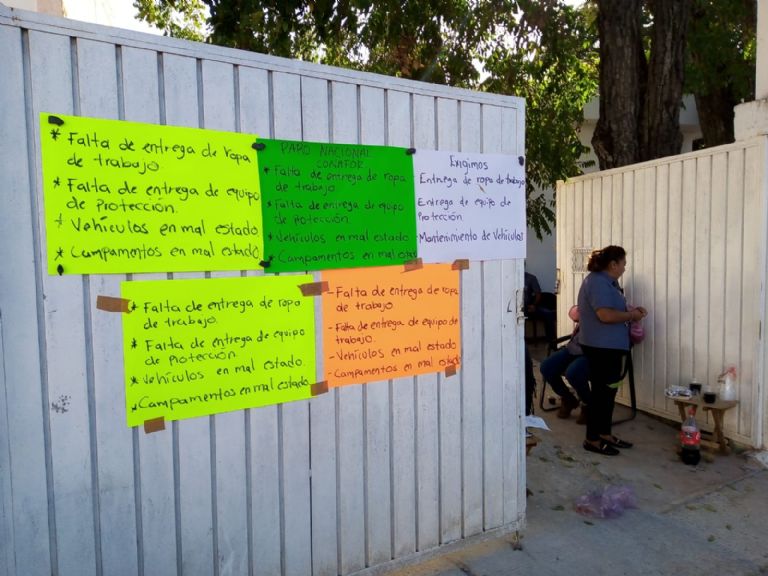 * Falta de entrega de ropa
de trabajo.
* Falta de entrega de equipo
de Protección.
* Vehículos en mal estado
* Campamentos en mal estado
PARO NACIONAL
CONAFOR
* Falta de entrega de ropa
de trabajo
* Falta de entrega de equipo
de Protección
* Vehículos en mal estado
* Campamentos en mal estado
Exigimos
- Entrega de ropa de trabajo
Entrega de equipo de
Protección
- Mantenimiento de Vehículos
* Falta de entrega de ropa
de trabajo.
* Falta de entrega de equipo
de Protección.
* Vehículos en mal estado.
* Campamentos en mal estado
- Falta de entrega de ropa
de trabajo
- Falta de entrega de equipo de
trabajo.
- Vehículos en mal estado
- Campamentos en mal estado